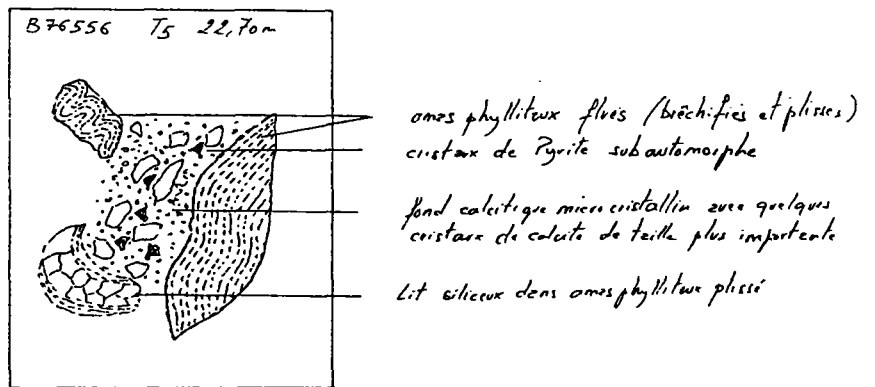 B76556 T5 22,70m
amas phylliteux flués (brêchifiés et plissés)
cristaux de Pyrite subautomorphe
fond calcitique microcristallin avec quelques
cristaux de calcite de taille plus importante
Lit siliceux dans amas phylliteux plissé